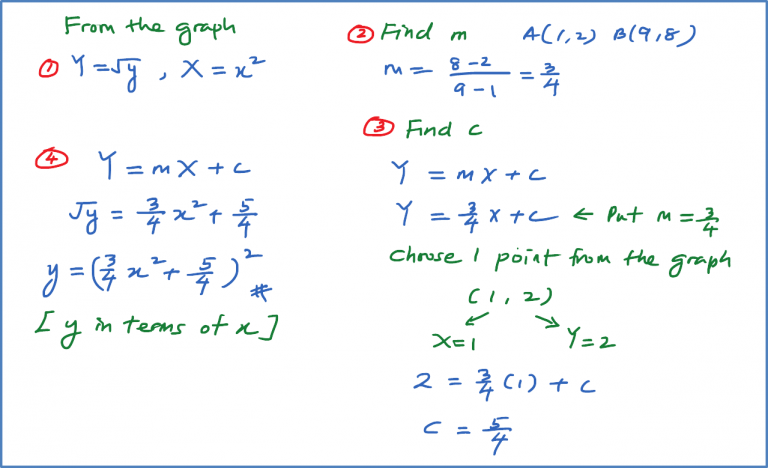 From the graph
① Y = √y , X = x²
② Find m A(1,2) B(9,8)
m = \frac{8-2}{9-1} = \frac{3}{4}
③ Find c
Y = mX + c
Y = \frac{3}{4}X + c ← Put m = \frac{3}{4}
choose 1 point from the graph
(1, 2)
X=1 Y=2
2 = \frac{3}{4}(1) + c
c = \frac{5}{4}
④ Y = mX + c
√y = \frac{3}{4}x² + \frac{5}{4}
y = (\frac{3}{4}x² + \frac{5}{4})² #
[y in terms of x]